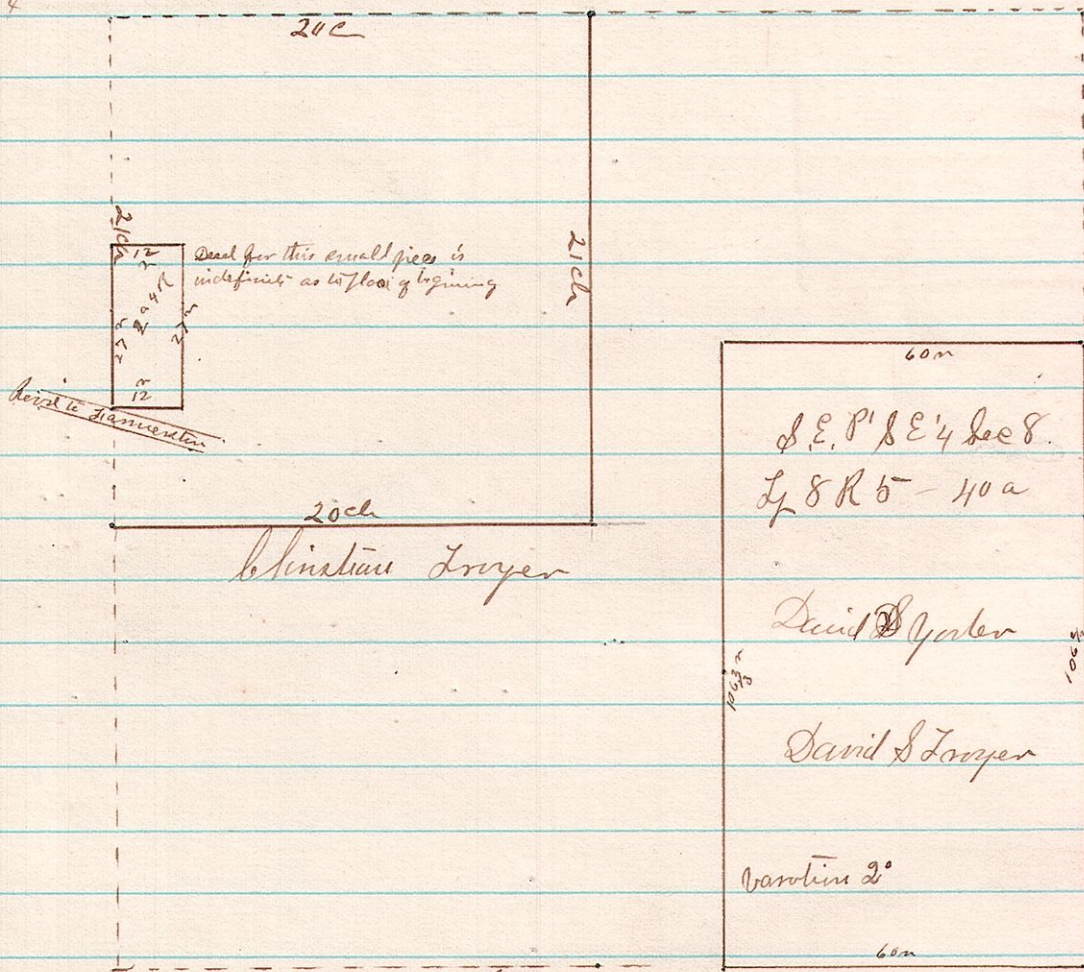 4
20C
21ch
12
r
Deed for this small piece is
indefinite as to place of bgining
2a 4R
27 r
27 r
r
12
21ch
20ch
Christian Troyer
60r
S.E. P' S E'4 Sec 8.
Tp 8 R 5 - 40 a
David Yoder
106 2/3 r
106 2/3
David S Troyer
varation 2°
60r